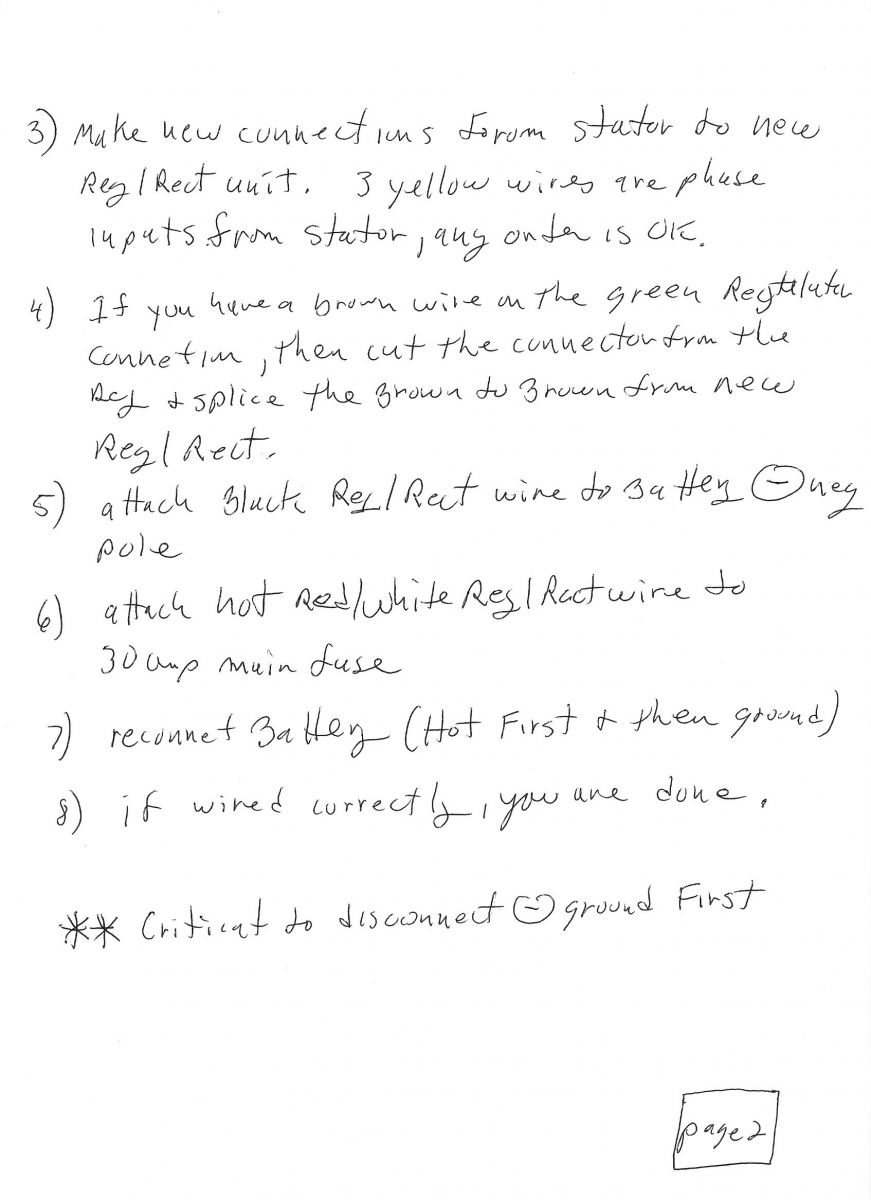 3) Make new connections forom stator to new
Reg/Rect unit. 3 yellow wires are phase
inputs from stator, any order is OK.
4) If you have a brown wire on the green Regulator
Connetion, then cut the connector from the
Reg & splice the Brown to Brown from new
Reg/Rect.
5) attach Black Reg/Rect wire to Battery ⊖ neg
pole
6) attach hot Red/White Reg/Rect wire to
30 amp main fuse
7) reconnet Battery (Hot First & then ground)
8) if wired correctly, you are done.
** Critical to disconnect ⊖ ground First
page 2